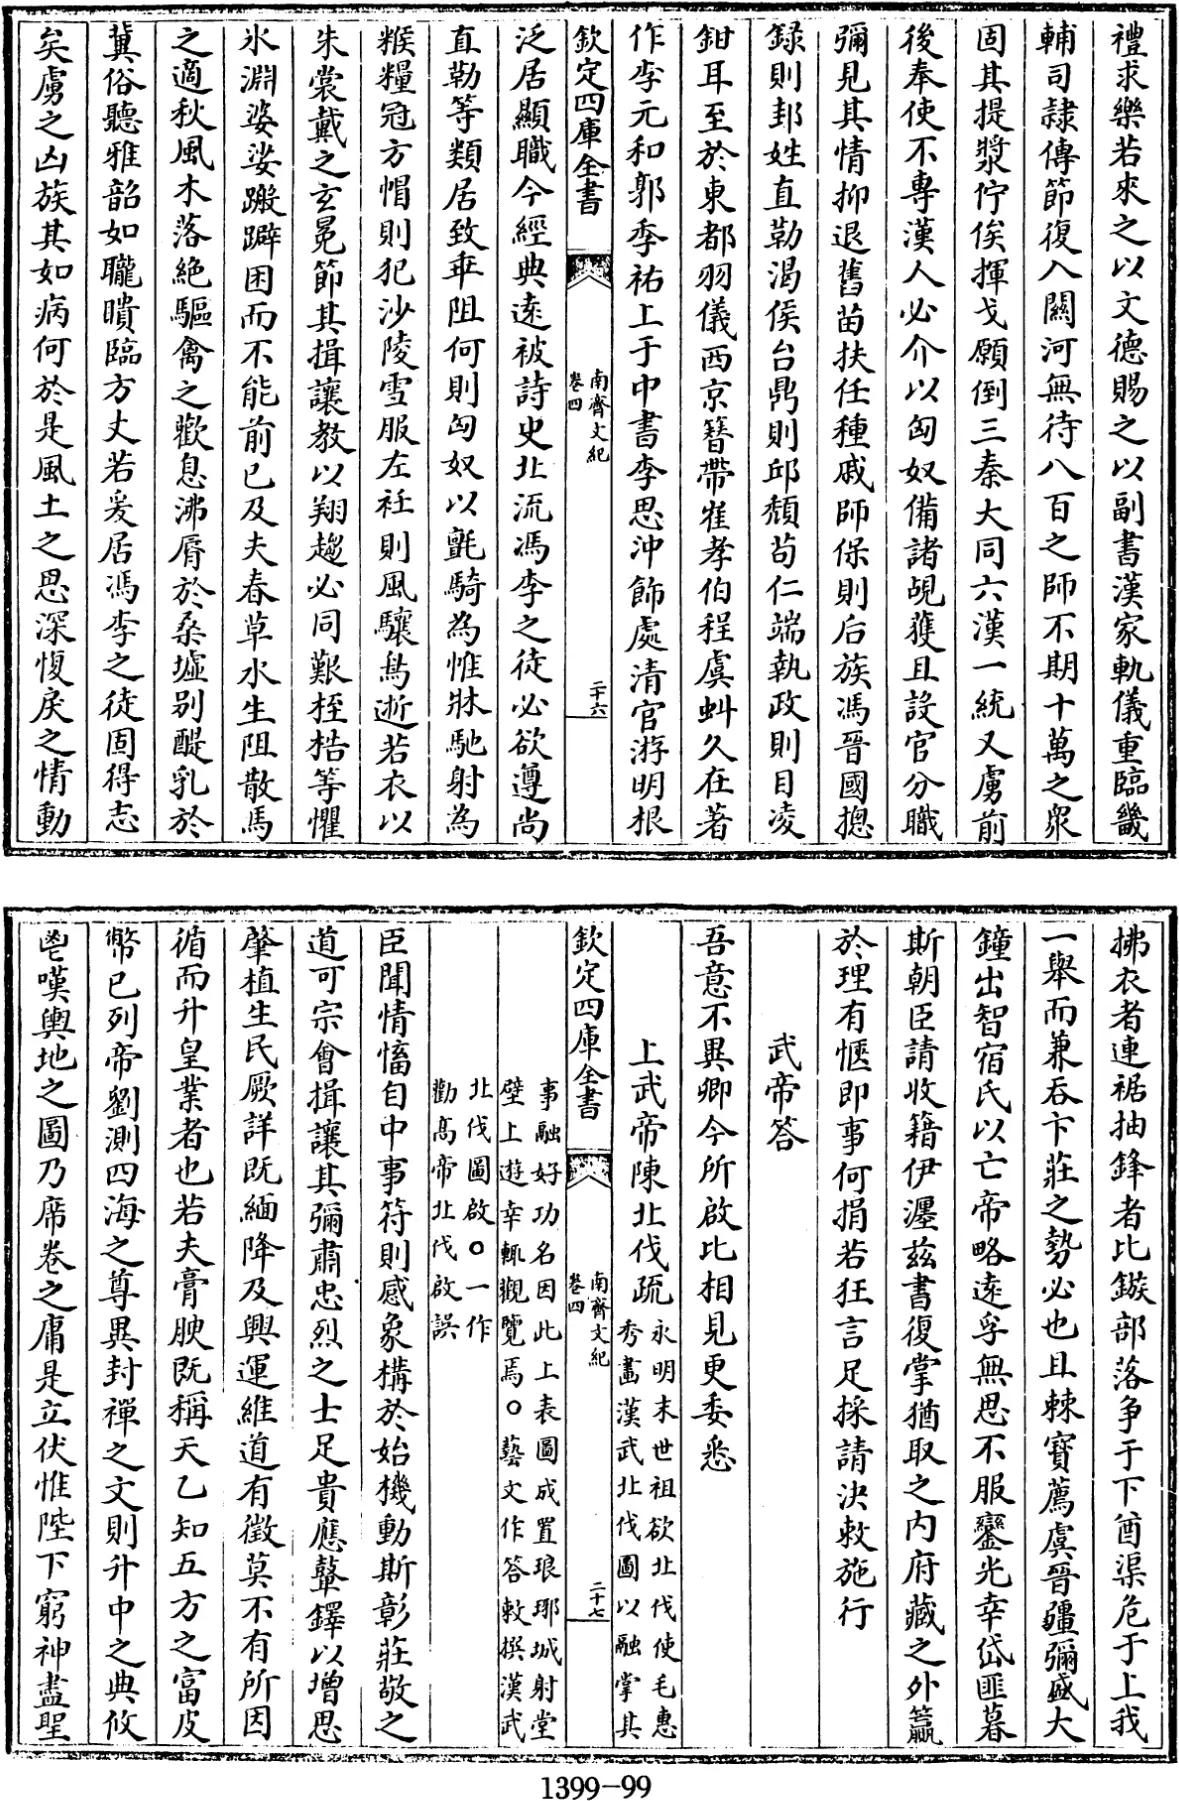 禮求樂若來之以文德賜之以副書漢家軌儀重臨畿
輔司隷傳節復入關河無待八百之師不期十萬之衆
固其提漿佇俟揮戈願倒三秦大同六漢一統又虜前
後奉使不專漢人必介以匈奴備諸覘獲且設官分職
彌見其情抑退舊苗扶任種戚師保則后族馮晉國摠
録則邽姓直勒渴侯台鼎則邱頹茍仁端執政則目凌
鉗耳至於東都羽儀西京簪帶崔孝伯程虞虯久在著
作李元和郭季祐上于中書李思沖飾處清官游明根
欽定四庫全書
南齊文紀
卷四
二十六
泛居顯職今經典逺被詩史北流馮李之徒必欲遵尚
直勒等類居致乖阻何則匈奴以氈騎為惟牀馳射為
糇糧冠方帽則犯沙陵雪服左衽則風驤鳥逝若衣以
朱裳戴之玄冕節其揖讓敎以翔趨必同艱桎梏等懼
氷淵婆娑蹣躃困而不能前已及夫春草水生阻散馬
之適秋風木落絶驅禽之歡息沸脣於桑墟别醍乳於
冀俗聽雅韶如聾聵臨方丈若爰居馮李之徒固得志
矣虜之凶族其如病何於是風土之思深愎戾之情動
拂衣者連裾抽鋒者比鏃部落争于下酋渠危于上我
一舉而兼吞卞莊之勢必也且棘寶薦虞晉疆彌盛大
鐘出智宿氏以亡帝略逺孚無思不服鑾光幸岱匪暮
斯朝臣請收籍伊瀍兹書復掌猶取之内府藏之外籯
於理有愜即事何捐若狂言足採請決敕施行
武帝答
吾意不異卿今所啟比相見更委悉
上武帝陳北伐疏
永明末世祖欲北伐使毛惠
秀畫漢武北伐圖以融掌其
欽定四庫全書
南齊文紀
卷四
二十七
事融好功名因此上表圖成置琅琊城射堂
壁上遊幸輒觀覽焉○藝文作答敕撰漢武
北伐圖啟○一作
勸髙帝北伐啟誤
臣聞情慉自中事符則感象構於始機動斯彰莊敬之
道可宗會揖讓其彌肅忠烈之士足貴應鼙鐸以增思
肇植生民厥詳既緬降及興運維道有徵莫不有所因
循而升皇業者也若夫膏腴既稱天乙知五方之富皮
幣已列帝劉測四海之尊異封禪之文則升中之典攸
鬯嘆輿地之圖乃席卷之庸是立伏惟陛下窮神盡聖
1399-99